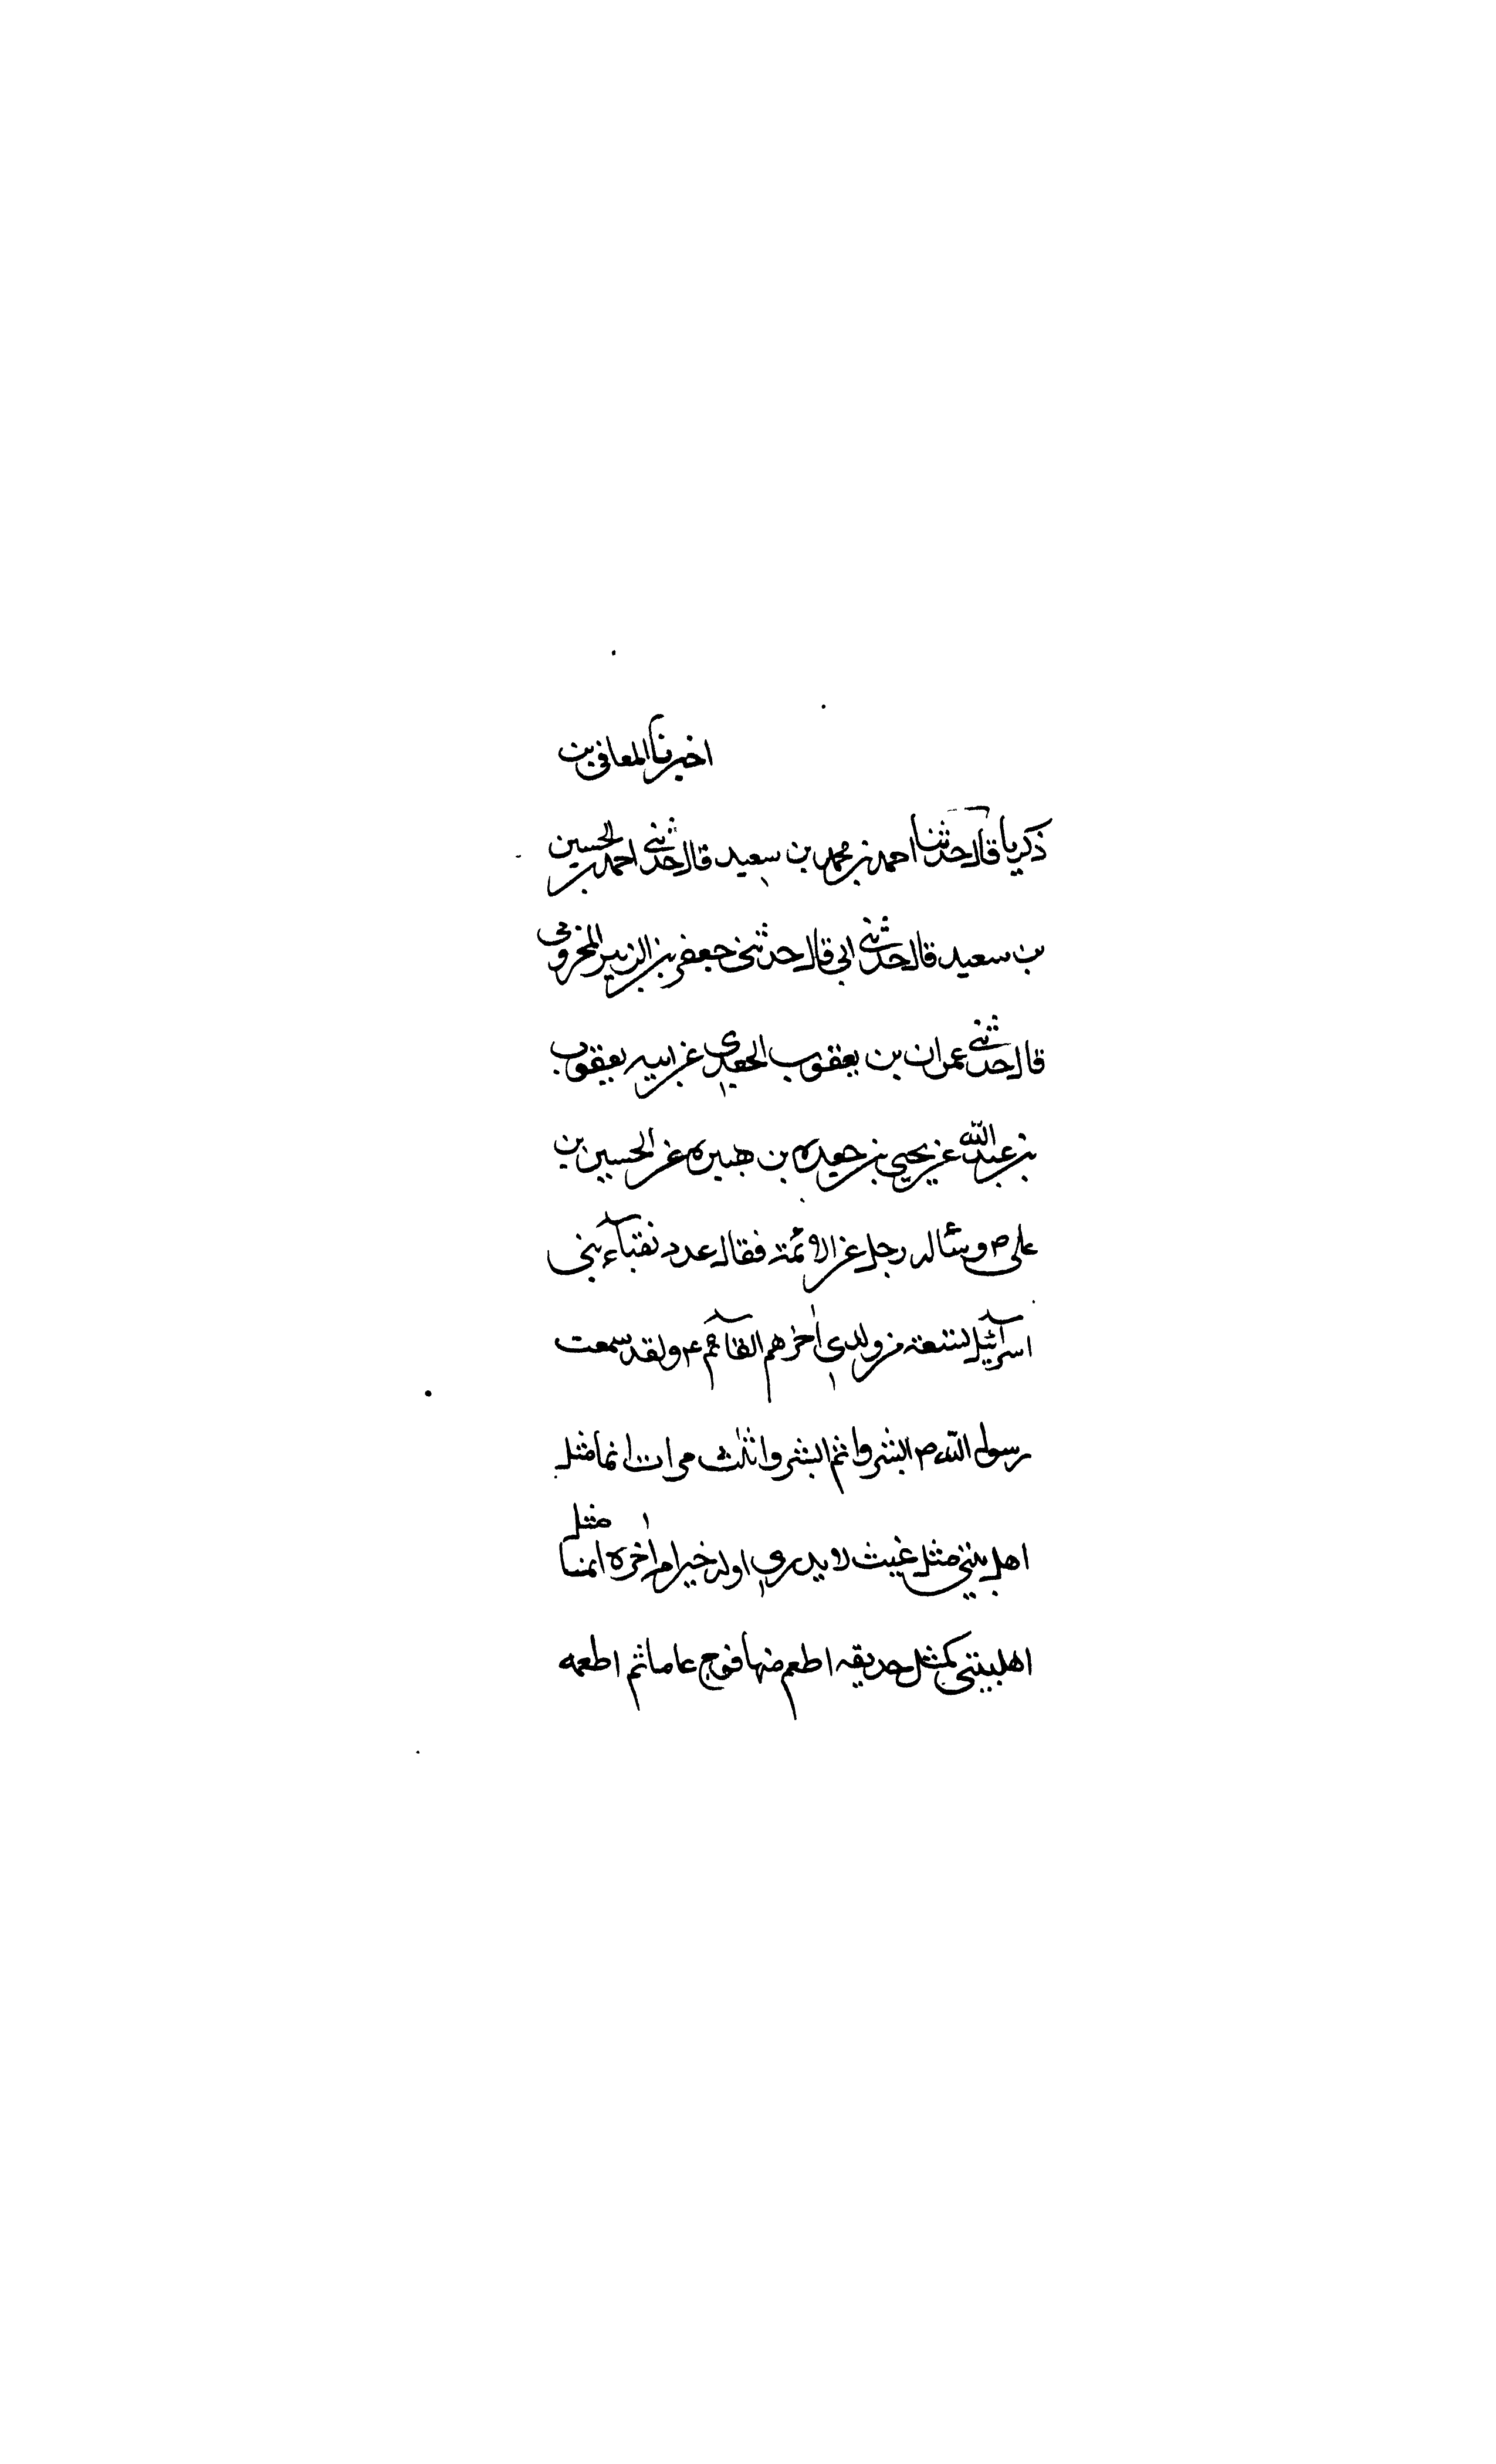 اخبرنا المعافى بن
ذكريا قال حدثنا احمد بن محمد بن سعيد قال حدثني احمد بن الحسين
بن سعيد قال حدثني ابي قال حدثني جعفر بن الزبير المخزومي
قال حدثني عمران بن يعقوب الجعدي عن ابيه يعقوب
بن عبد الله عن يحيى بن جعده بن هبيره عن الحسين بن
علي ص وسئاله رجل عن الائمة فقال عدد نقبآء بني
اسرآئيل لتسعة من ولدي اخرهم القآئم ع ولقد سمعت
رسول الله ص ابشروا ثم ابشروا ثلث مرات انما مثل
اهل بيتي مثل غيث لا يدري اوله خير ام اخره انما مثل
اهلبيتي كمثل حديقه اطعم منها فوج عاما ثم اطعمه